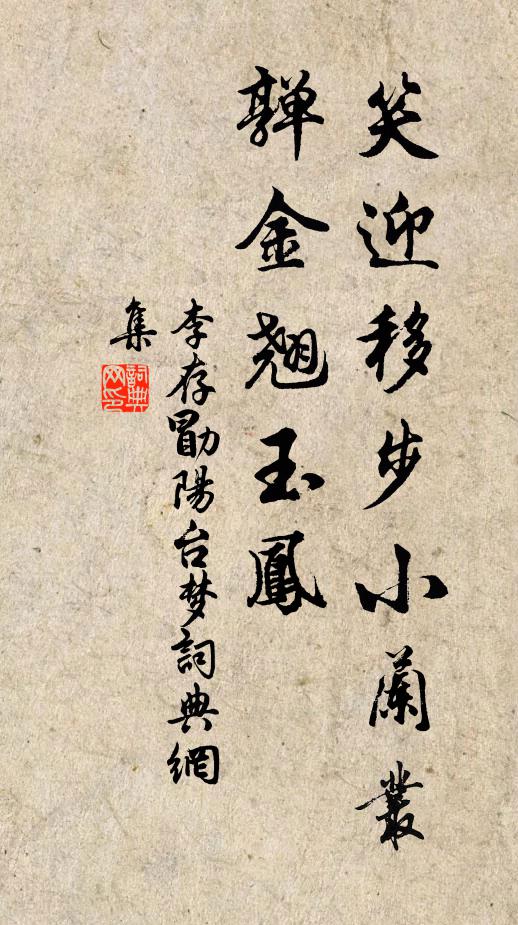 笑迎移步小蘭叢
嚲金翹玉鳳
李存勖陽台梦詞典網
集
詞典網印